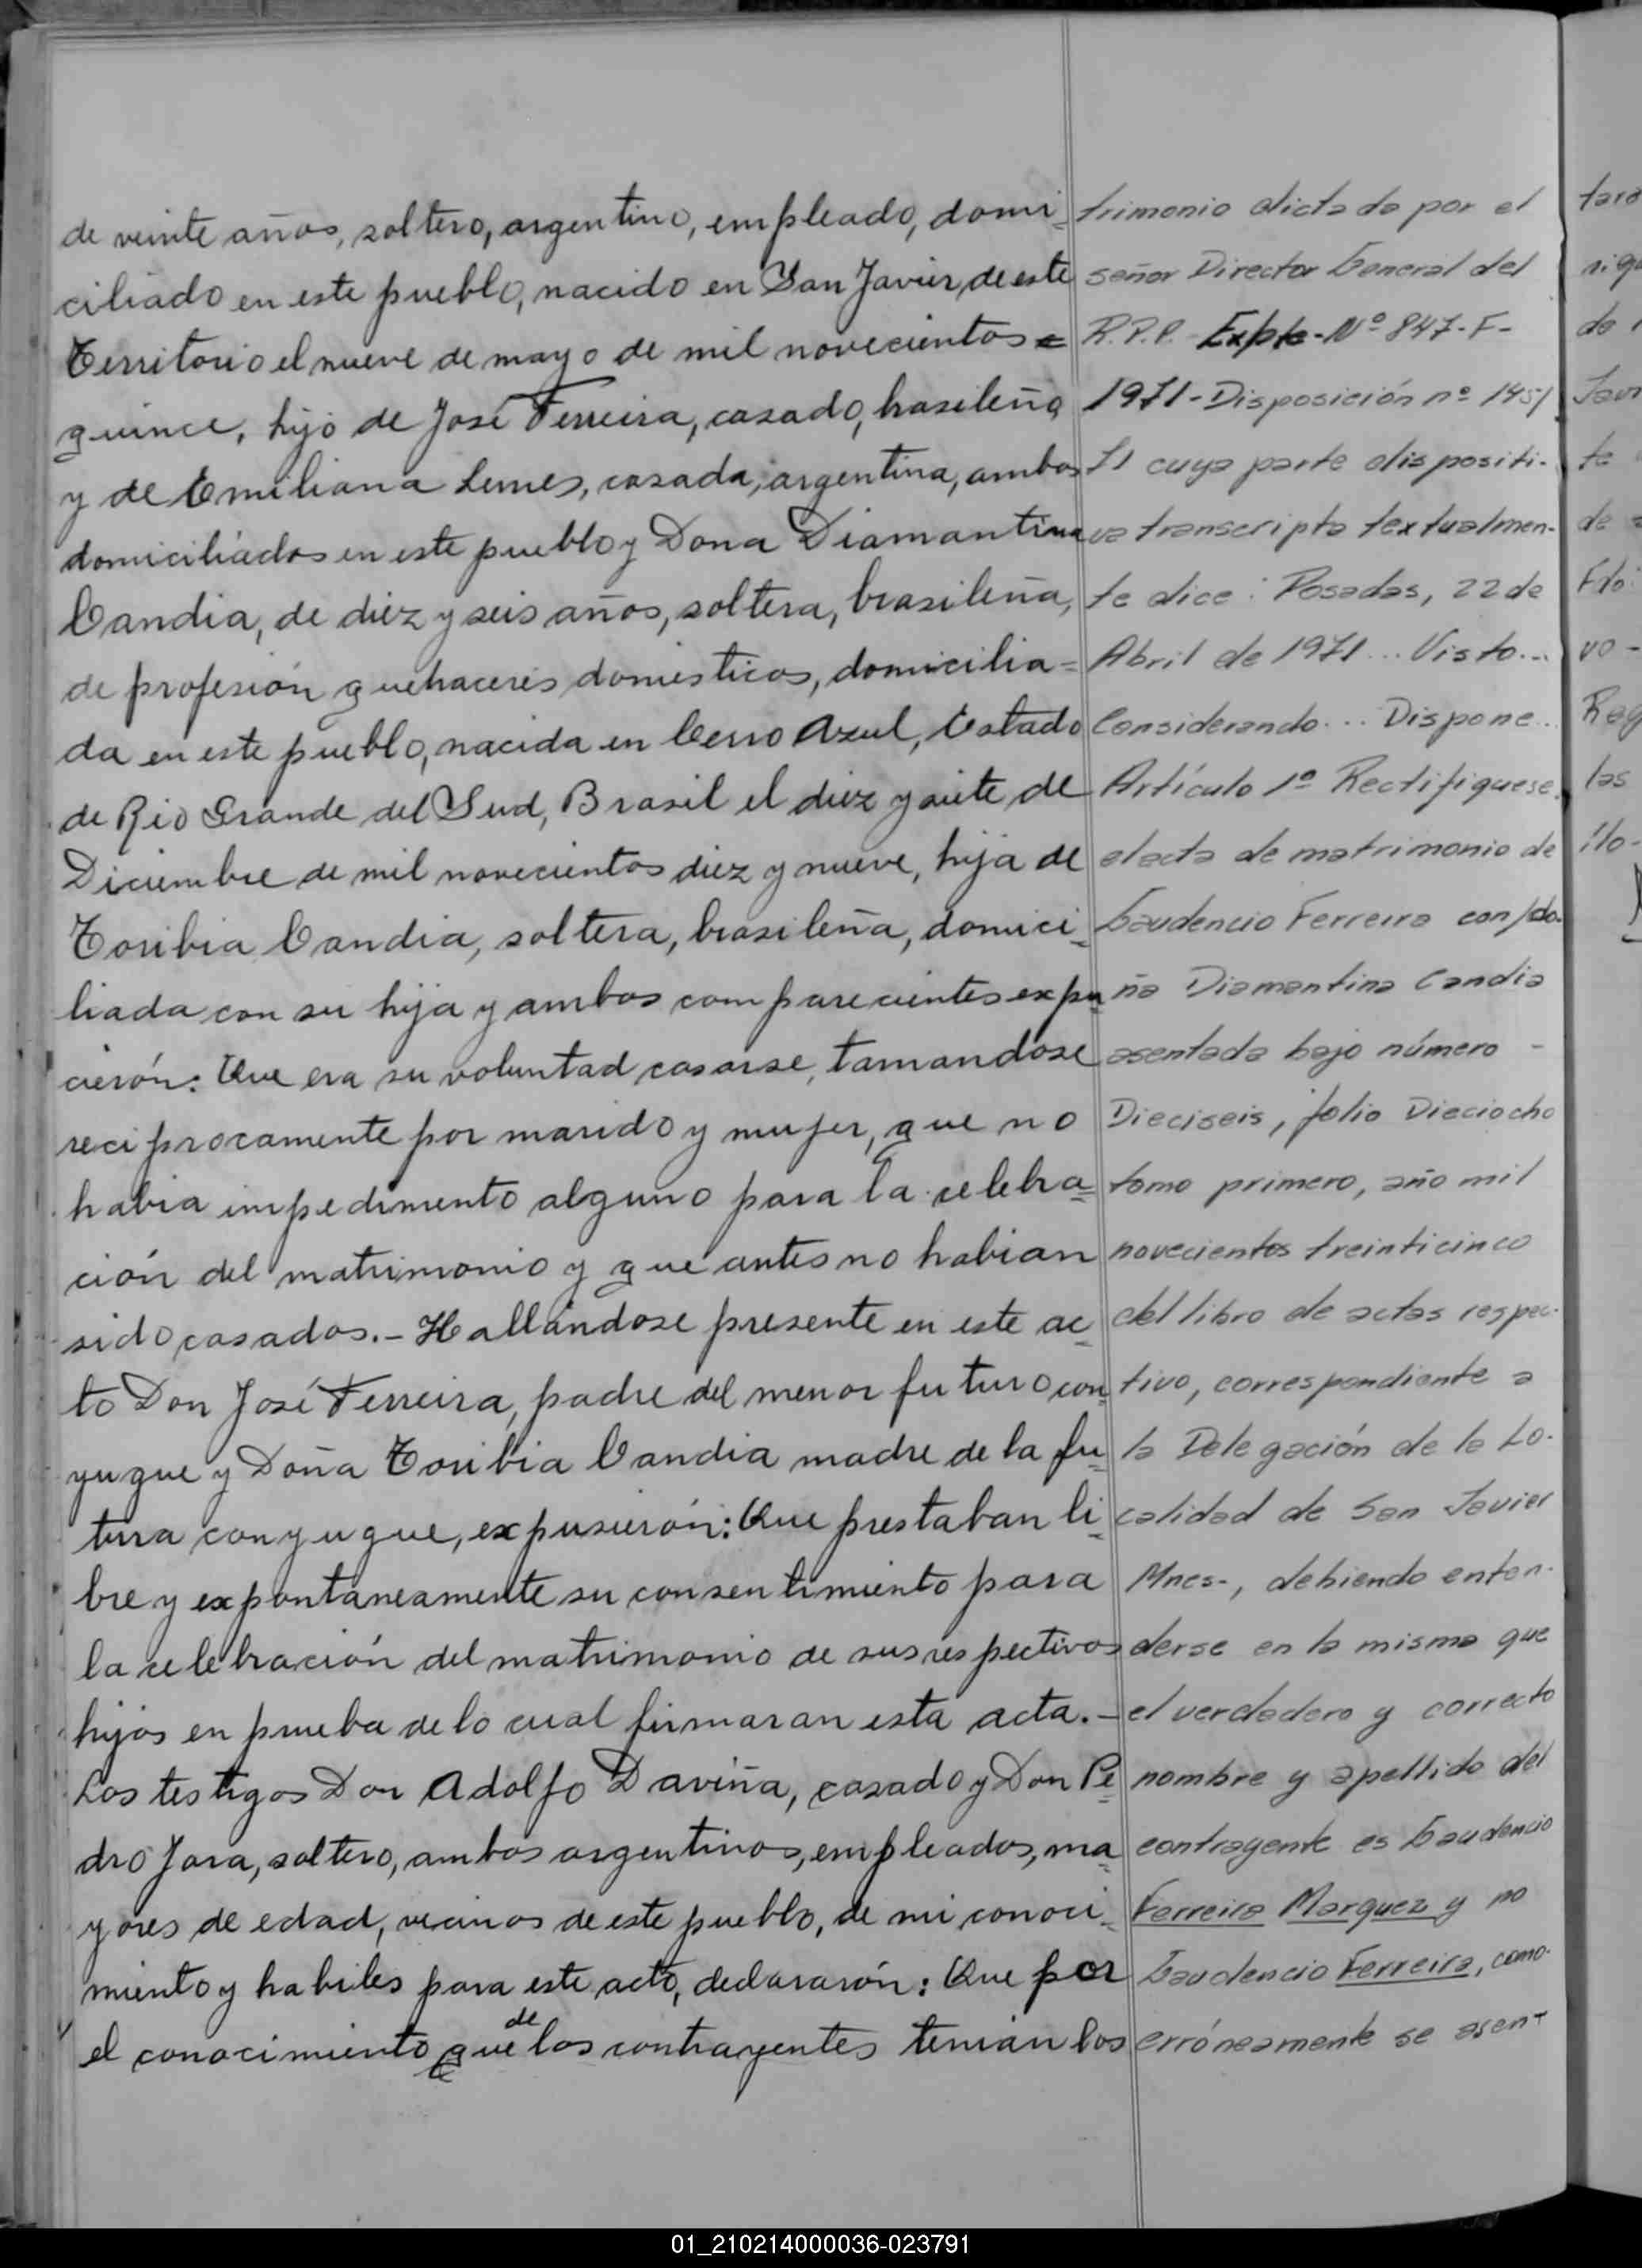 de veinte años, soltero, argentino, empleado, domi-
ciliado en este pueblo, nacido en San Javier, de este
Territorio el nueve de mayo de mil novecientos =
quince, hijo de José Ferreira, casado, brasileño
y de Emiliana Lemes, casada, argentina, ambos
domiciliados en este pueblo y Dona Diamantina
Candia, de diez y seis años, soltera, brasileña,
de profesión quehaceres domésticos, domicilia=
da en este pueblo, nacida en Cerro Azul, Estado
de Rio Grande del Sud, Brasil el diez y siete de
Diciembre de mil novecientos diez y nueve, hija de
Toribia Candia, soltera, brasileña, domici=
liada con su hija y ambos comparecientes expu
cierón: Que era su voluntad casarse, tamandose
reciprocamente por marido y mujer, que no
habia impedimento alguno para la celebra=
ción del matrimonio y que antes no habian
sido casados.- Hallándose presente en este ac=
to Don José Ferreira, padre del menor futuro con=
yugue y Doña Toribia Candia madre de la fu=
tura conyugue, expusierón: Que prestaban li=
bre y expontaneamente su consentimiento para
la celebración del matrimonio de sus respectivos
hijos en prueba de lo cual firmaran esta acta.-
Los testigos Don Adolfo Daviña, casado y Don Pe=
dro Jara, soltero, ambos argentinos, empleados, ma=
yores de edad, vecinos de este pueblo, de mi conoci=
miento y habiles para este acto, declararón: Que por
el conocimiento que de los contrayentes tenian los
trimonio dictado por el
señor Director General del
R.P.P. Expte-Nº 847-F-
1971-Disposición nº 145/
71 cuya parte dispositi-
va transcripta textualmen-
te dice: Posadas, 22 de
Abril de 1971... Visto...
Considerando... Dispone..
Artículo 1º Rectifiquese
el acta de matrimonio de
Gaudencio Ferreira con do-
ña Diamantina Candia
asentada bajo número -
Dieciseis, folio Dieciocho
tomo primero, año mil
novecientos treinticinco
del libro de actas respec-
tivo, correspondiente a
la Delegación de la Lo-
calidad de San Javier
Mnes-, debiendo enten-
derse en la misma que
el verdadero y correcto
nombre y apellido del
contrayente es Gaudencio
Ferreira Marquez y no
Gaudencio Ferreira, como-
erróneamente se asen-
01_210214000036-023791